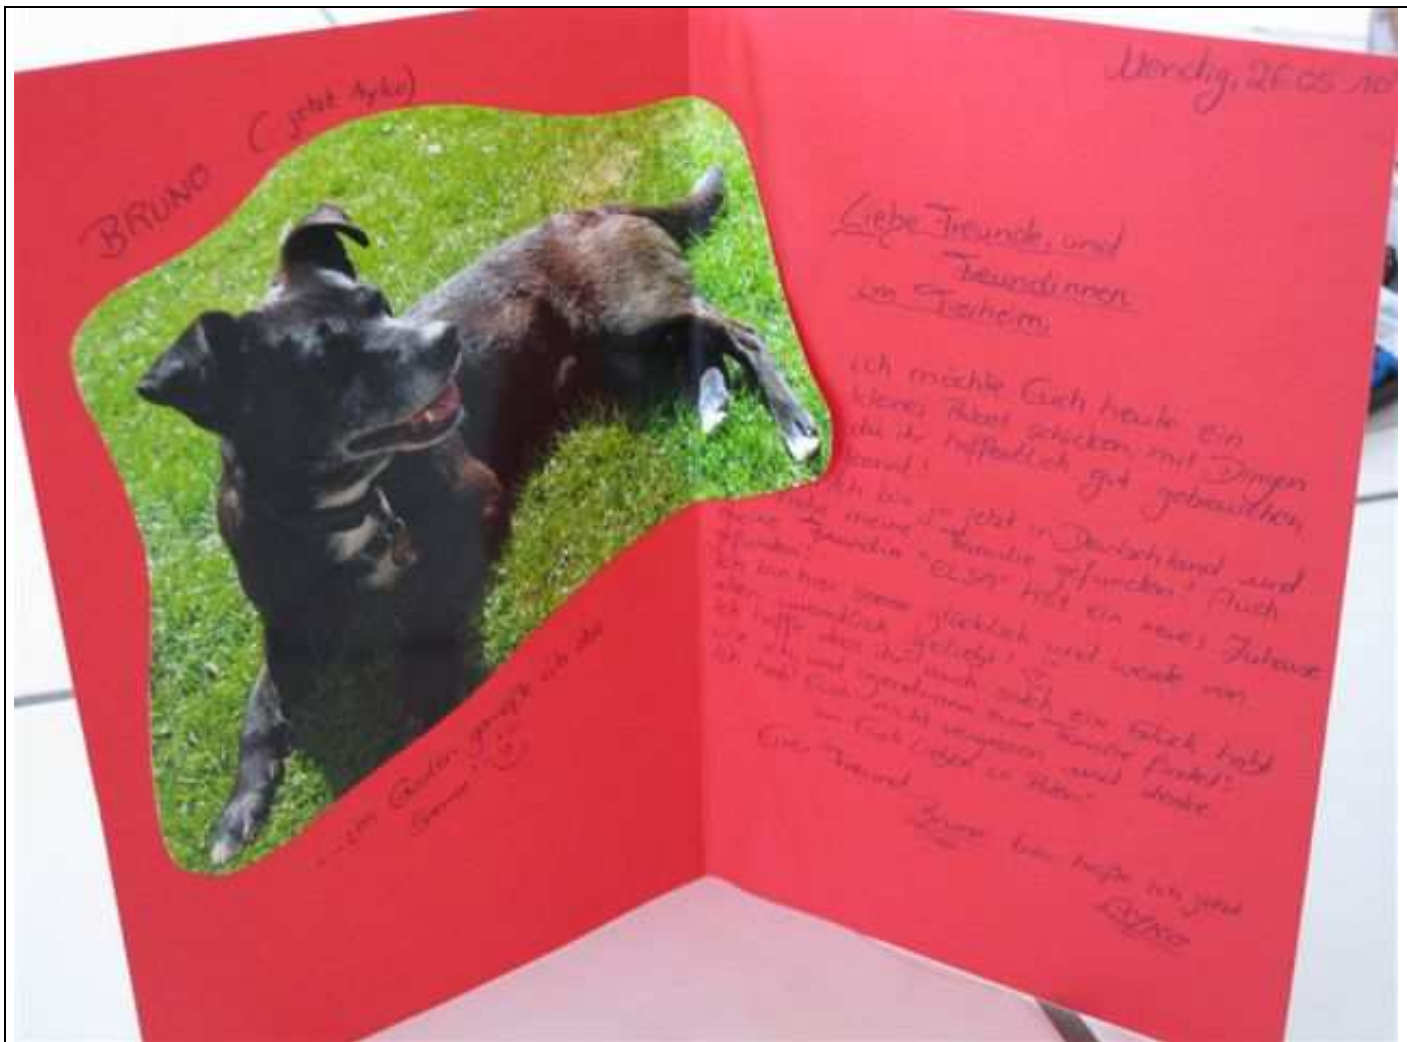 BRUNO (jetzt Ayko)
... im Garten genieße ich die
Sonne!
Mendig, 26.05.10
Liebe Freunde, und
Freundinnen
im Tierheim,
ich möchte Euch heute ein
kleines Paket schicken, mit Dingen
die ihr hoffentlich gut gebrauchen
könnt!
Ich bin ja jetzt in Deutschland und
habe meine Familie gefunden! Auch
meine Freundin "ELSA" hat ein neues Zuhause
gefunden!
Ich bin hier glücklich und werde von
allen unendlich geliebt!
Ich hoffe dass ihr auch solch ein Glück habt
wie ich und irgendwann eine Familie findet!
Ich hab' Euch nicht vergessen und drücke
Euch
Euer Freund
Bruno hier heiße ich jetzt
Ayko